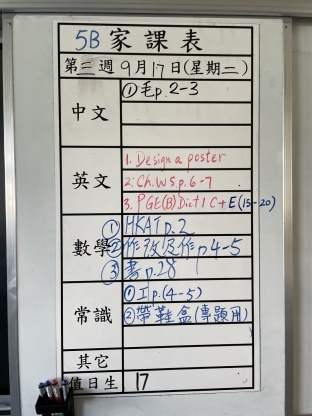 5B 家課表
第三週 9月17日(星期二)
中文
①毛p.2-3
英文
1. Design a poster
2. Ch.WS p.6-7
3. PGE(B) Dict 1 C+E(15-20)
數學
① HKAT p.2
②作改及作p4-5
③書p.28
常識
①工p.(4-5)
②帶鞋盒(專題用)
其它
值日生 17